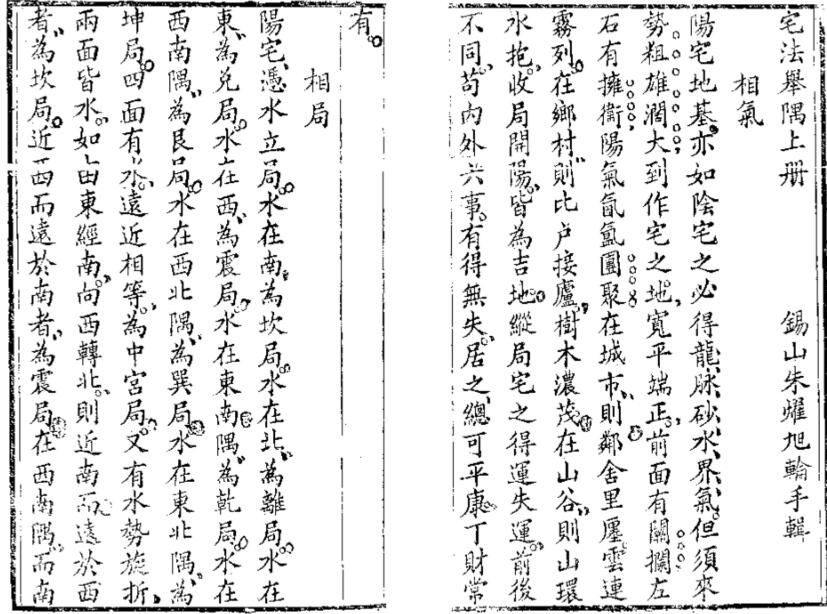 宅法舉隅上册　錫山朱燿旭輪手輯
相氣
陽宅地基亦如陰宅之必得龍脉砂水界氣但須來
勢粗雄濶大到作宅之地寬平端正前面有關攔左
石有擁衛陽氣氤氲團聚在城市則鄰舍里廛雲連
霧列在鄉村則比户接廬樹木濃茂在山谷則山環
水抱收局開陽皆為吉地縱局宅之得運失運前後
不同苟内外六事有得無失居之總可平康丁財常
有
相局
陽宅憑水立局水在南為坎局水在北為離局水在
東為兌局水在西為震局水在東南隅為乾局水在
西南隅為艮局水在西北隅為巽局水在東北隅為
坤局四面有水遠近相等為中宮局又有水勢旋折
兩面皆水如由東經南向西轉北則近南而遠於西
者為坎局近西而遠於南者為震局在西南隅而南